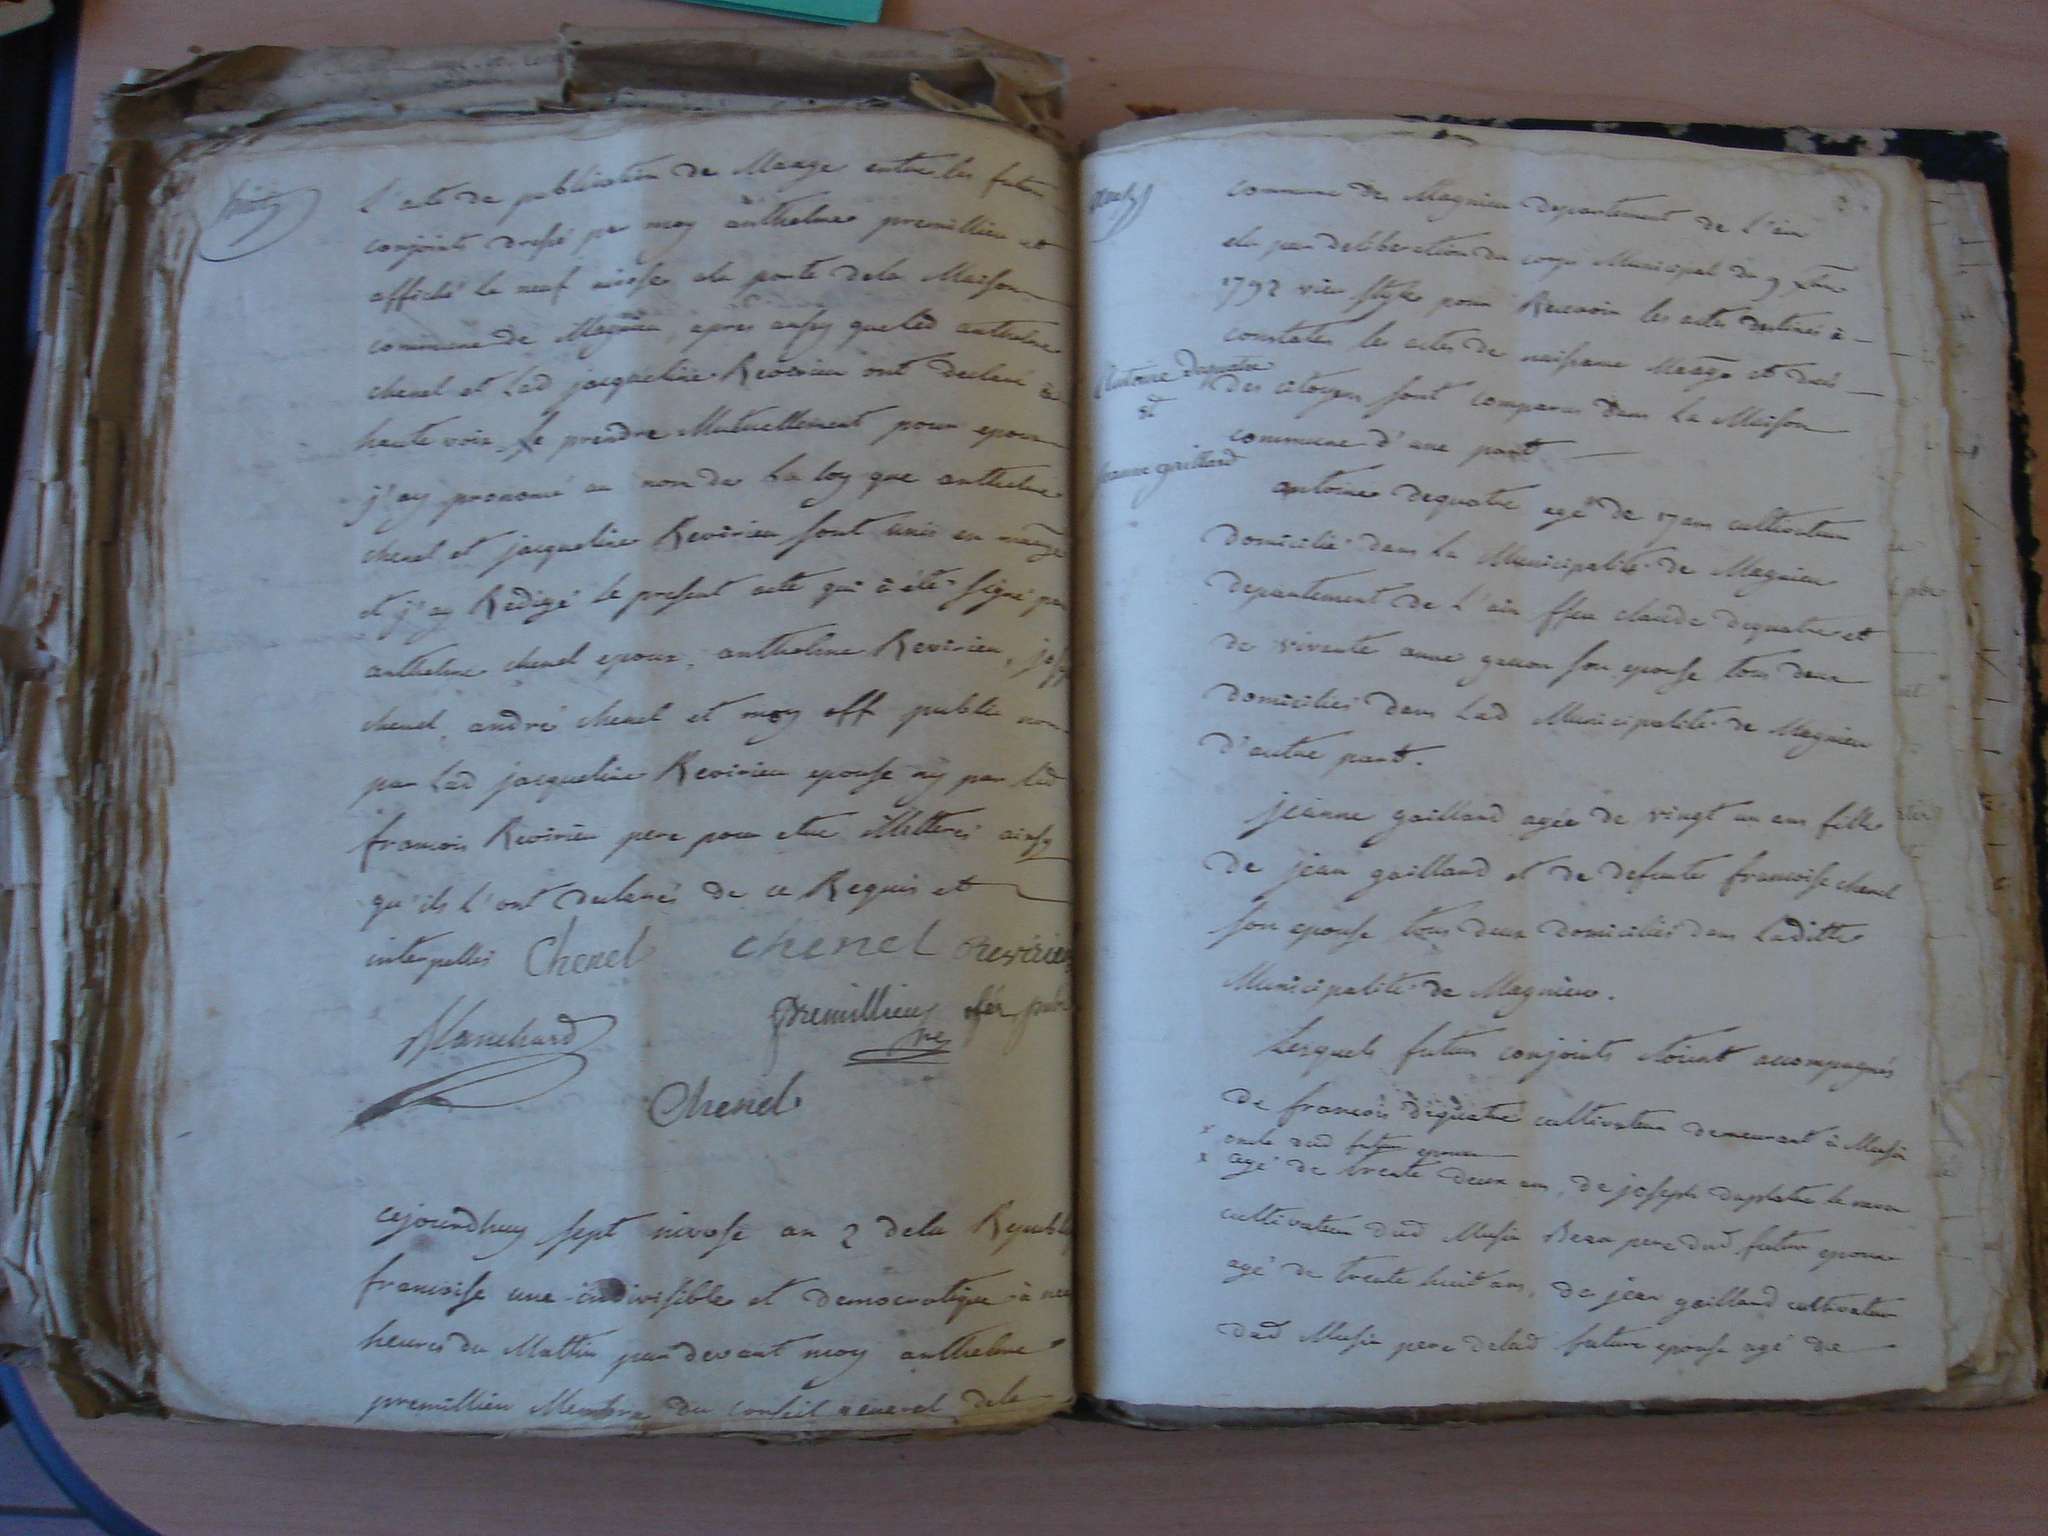 huit
L'acte de publication de Maage entre les futurs
conjoints dressé par moy anthelme premillieu et
affiché le neuf nivose a la porte de la Maison
commune de Magnieu, apres aussy que led anthelme
chenel et Lad jacqueline Revirieu ont declaré a
haute voix se prendre Mutuellement pour epoux
j'ay prononcé au nom de La loy que anthelme
chenel et jacqueline Revirieu sont unis en maage
et j'ay Redigé le present acte qui à été signé par
anthelme chenel epoux, anthelme Revirieu, josp
chenel, andré chenel et moy off public non
par Lad jacqueline Revirieu epouse ny par led
francois Revirieu pere pour etre illitteres ainsy
qu'ils L'ont declarés de ce Requis et
interpellés Chenel chenel Revirieu
Blanchard premillieu offer publ
Chenel
cejourdhuy sept nivose an 2 dela Republ
francoisse une indivisible et democratique à neuf
heures du Mattin pardevant moy anthelme
premillieu Membre du conseil general dela
neuf
commune de Magnieu departement de L'ain
elu par deliberation du corps Municipal du 9 xbre
1792 vieu style pour Recevoir les actes destinés à
constater les actes de naissance Maage et decé
Antoine dequatre
et
Jeanne gaillard
des citoyens sont comparus dans La Maison
commune d'une part
antoine dequatre agé de 17 ans cultivateur
domicilié dans La Municipalité de Magnieu
departement de L'ain ffeu claude dequatre et
de vivente anne son epouse tous deux
domiciliés dans Lad Municipalité de Magnieu
d'autre part.
jeanne gaillard agée de vingt un ans fille
de jean gaillard et de defeute francoise chenel
son epouse tous deux domiciliés dans Laditte
Municipalité de Magnieu.
Lesquels futurs conjoints etoient accompagnés
de francois dequatre cultivateur demeurant à Musin
x oncle dud futur epoux
x agé de trente deux ans, de joseph
cultivateur dud Musin Beau pere dud futur epoux
agé de trente huit ans, de jean gaillard cultivateur
dud Musin pere delad future epouse agé de